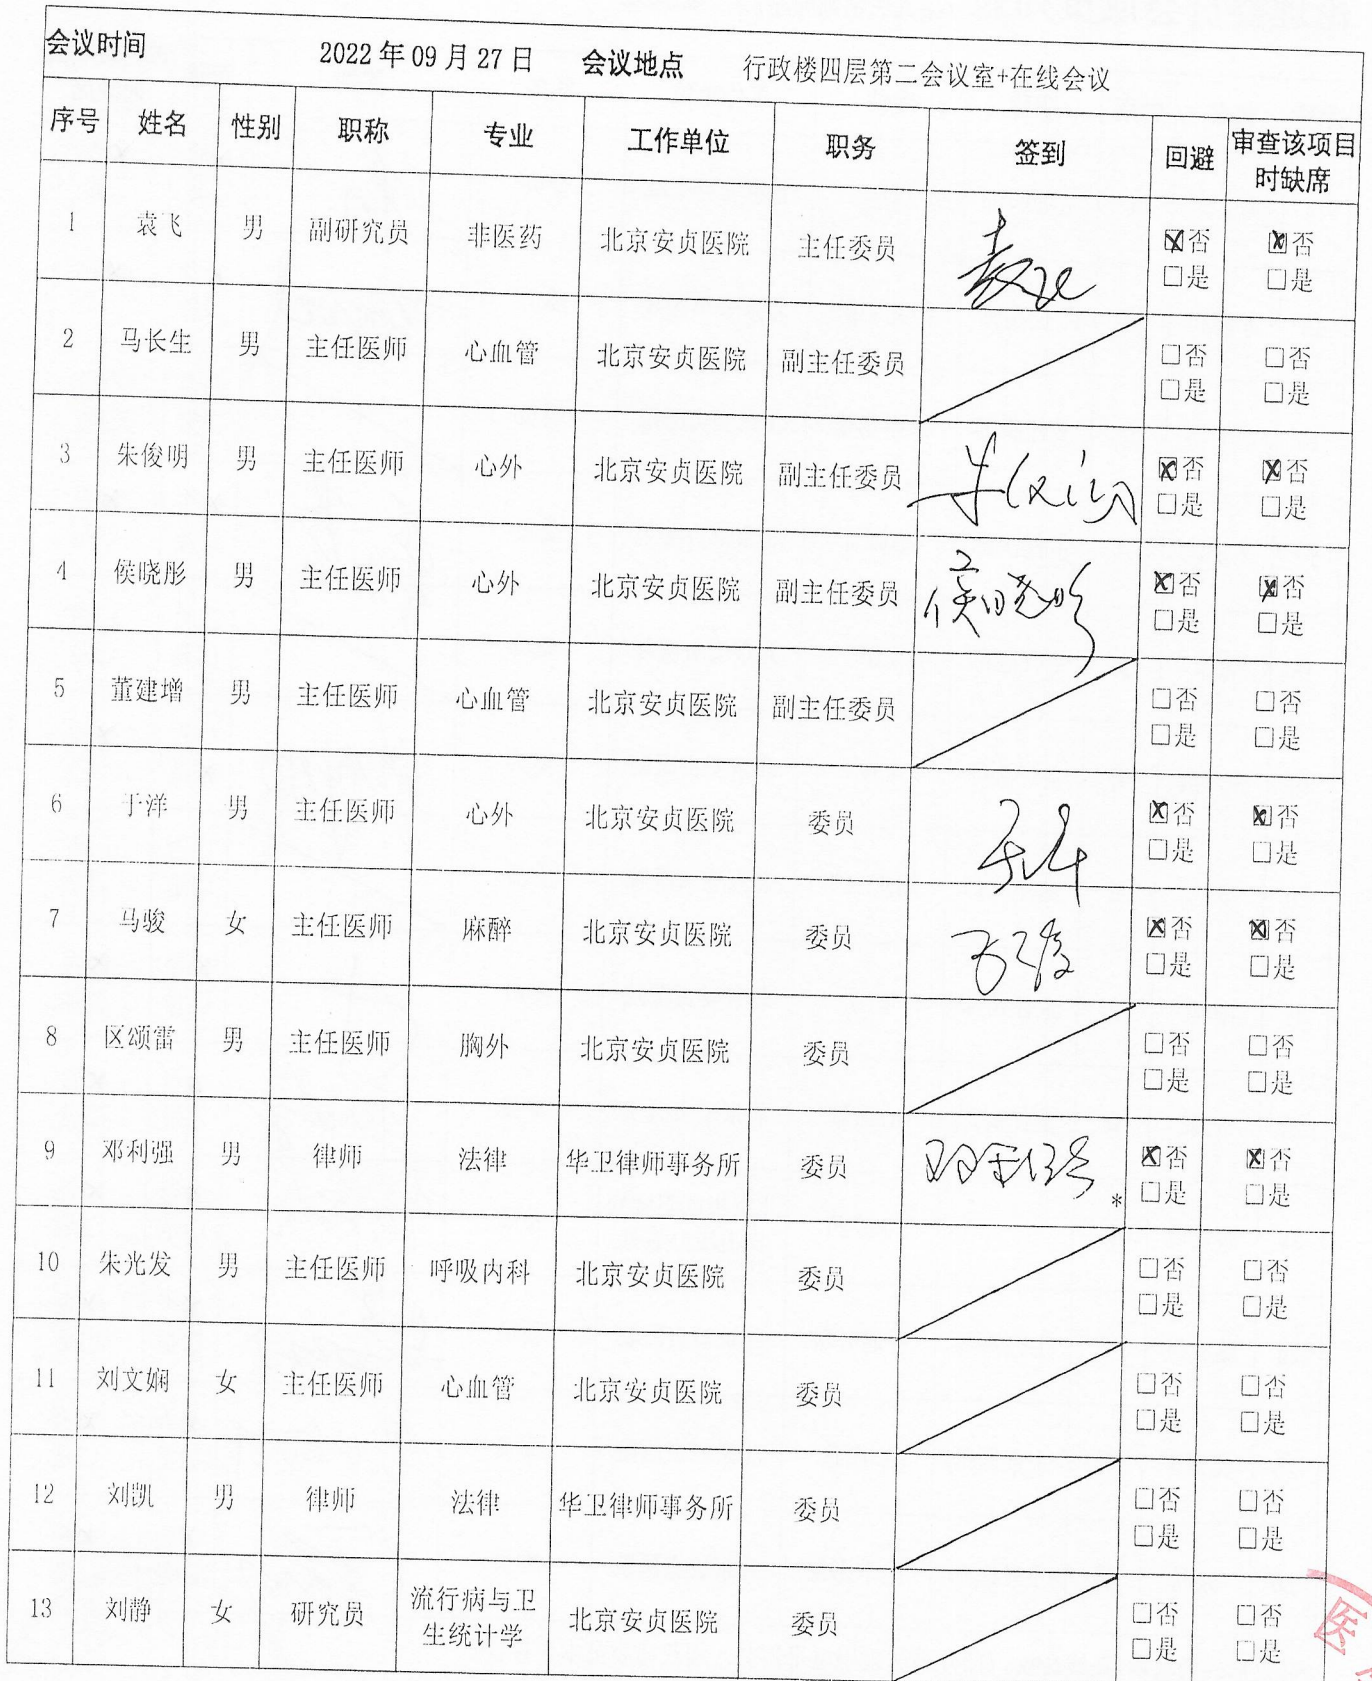 会议时间 2022年09月27日 会议地点 行政楼四层第二会议室+在线会议
序号 姓名 性别 职称 专业 工作单位 职务 签到 回避 审查该项目时缺席
1 袁飞 男 副研究员 非医药 北京安贞医院 主任委员 袁飞 ☒否 ☒否
□是 □是
2 马长生 男 主任医师 心血管 北京安贞医院 副主任委员 □否 □否
□是 □是
3 朱俊明 男 主任医师 心外 北京安贞医院 副主任委员 朱俊明 ☒否 ☒否
□是 □是
4 侯晓彤 男 主任医师 心外 北京安贞医院 副主任委员 侯晓彤 ☒否 ☒否
□是 □是
5 董建增 男 主任医师 心血管 北京安贞医院 副主任委员 □否 □否
□是 □是
6 于洋 男 主任医师 心外 北京安贞医院 委员 于洋 ☒否 ☒否
□是 □是
7 马骏 女 主任医师 麻醉 北京安贞医院 委员 马骏 ☒否 ☒否
□是 □是
8 区颂雷 男 主任医师 胸外 北京安贞医院 委员 □否 □否
□是 □是
9 邓利强 男 律师 法律 华卫律师事务所 委员 邓利强 * ☒否 ☒否
□是 □是
10 朱光发 男 主任医师 呼吸内科 北京安贞医院 委员 □否 □否
□是 □是
11 刘文娴 女 主任医师 心血管 北京安贞医院 委员 □否 □否
□是 □是
12 刘凯 男 律师 法律 华卫律师事务所 委员 □否 □否
□是 □是
13 刘静 女 研究员 流行病与卫生统计学 北京安贞医院 委员 □否 □否
□是 □是
医